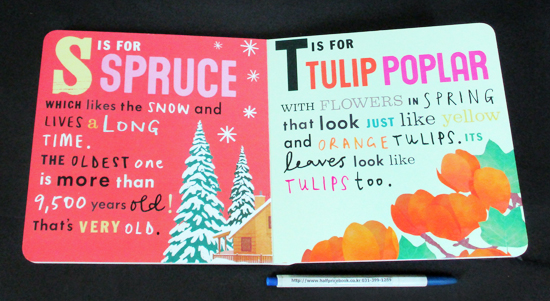 S IS FOR
SPRUCE
WHICH likes the SNOW and
LIVES a LONG
TIME.
THE OLDEST one
is more than
9,500 years old!
That's VERY OLD.
T IS FOR
TULIP POPLAR
WITH FLOWERS IN SPRING
that look JUST like yellow
and ORANGE TULIPS. ITS
leaves look like
TULIPS too.